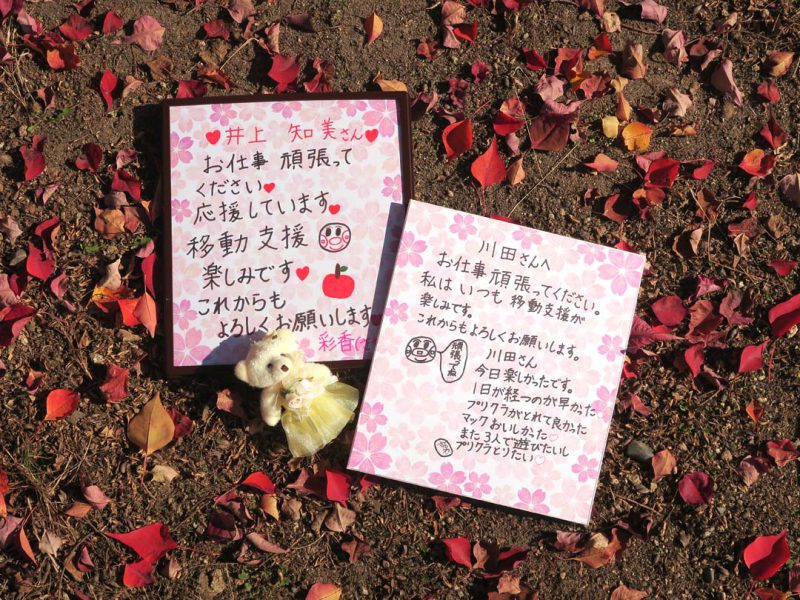 井上 知美さん
お仕事 頑張って
ください
応援しています
移動支援
楽しみです
これからも
よろしくお願いします
彩香
川田さんへ
お仕事頑張ってください。
私はいつも移動支援が
楽しみです。
これからもよろしくお願いします。
川田さん
今日楽しかったです。
1日が経つのが早かった
プリクラがとれて良かった
マックおいしかった
また3人で遊びたいし
プリクラとりたい